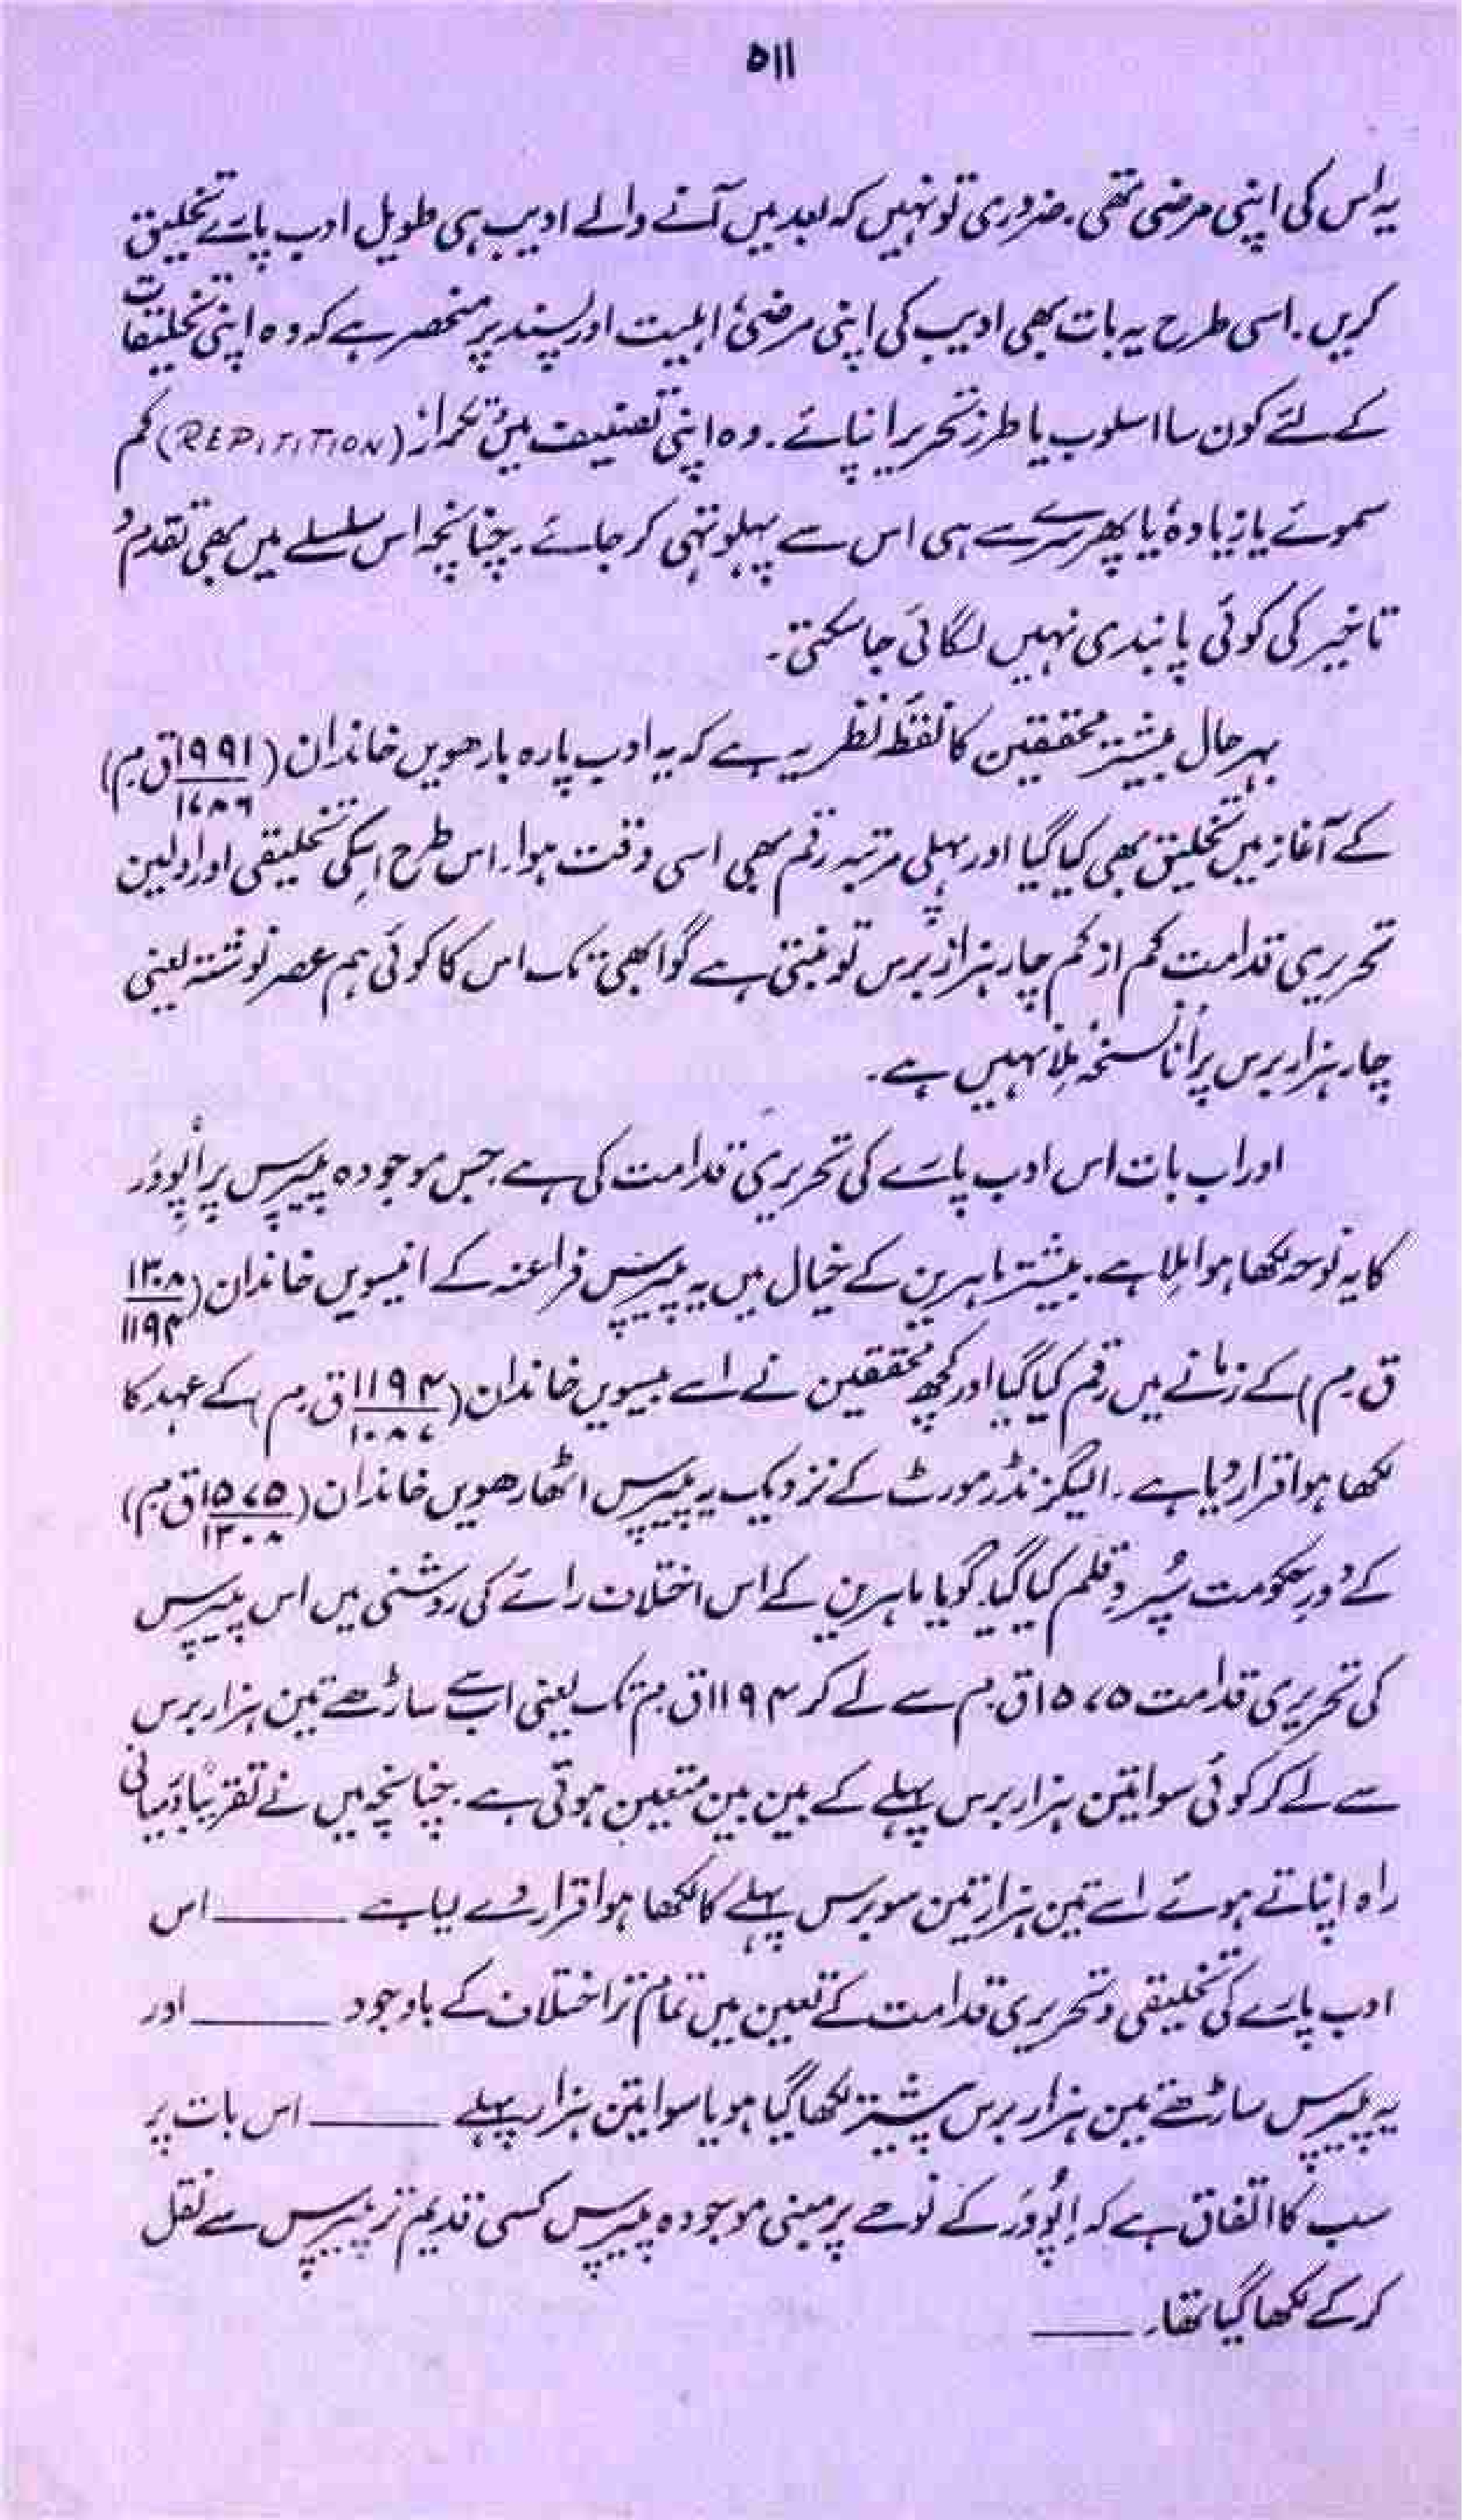 ۵۱۱
یہ اس کی اپنی مرضی تھی۔ ضروری تو نہیں کہ بعد میں آنے والے ادیب ہی طویل ادب پارے تخلیق
کریں۔ اسی طرح یہ بات بھی ادیب کی اپنی مرضی، اہلیت اور پسند پر منحصر ہے کہ وہ اپنی تخلیقات
کے لئے کون سا اسلوب یا طرز تحریر اپنائے۔ وہ اپنی تصنیف میں "تکرار" (REPITITION) کم
سموئے یا زیادہ، یا پھر سرے سے ہی اس سے پہلو تہی کر جائے۔ چنانچہ اس سلسلے میں بھی تقدم و
تاخیر کی کوئی پابندی نہیں لگائی جا سکتی۔
بہر حال بیشتر محققین کا نقطۂ نظر یہ ہے کہ یہ ادب پارہ بارھویں خاندان (۱۹۹۱/۱۷۸۶ ق۔م)
کے آغاز میں تخلیق بھی کیا گیا اور پہلی مرتبہ رقم بھی اسی وقت ہوا۔ اس طرح اسکی تخلیقی اور اولین
تحریری قدامت کم از کم چار ہزار برس تو بنتی ہے گو ابھی تک اس کا کوئی ہم عصر نوشتہ یعنی
چار ہزار برس پرانا نسخہ مِلا نہیں ہے۔
اور اب بات اس ادب پارے کی تحریری قدامت کی ہے، جس موجودہ پیپرس پر اِپُووَر
کا یہ نوحہ لکھا ہوا مِلا ہے۔ بیشتر ماہرین کے خیال میں یہ پیپرس فراعنہ کے انیسویں خاندان (۱۳۰۸/۱۱۹۴
ق۔م) کے زمانے میں رقم کیا گیا اور کچھ محققین نے اسے بیسویں خاندان (۱۱۹۴/۱۰۸۷ ق۔م) کے عہد کا
لکھا ہوا قرار دیا ہے۔ الیگزنڈر مورٹ کے نزدیک یہ پیپرس اٹھارھویں خاندان (۱۵۷۵/۱۳۰۸ ق۔م)
کے دورِ حکومت سپُرد قلم کیا گیا۔ گویا ماہرین کے اس اختلاف رائے کی روشنی میں اس پیپرس
کی تحریری قدامت ۱۵۷۵ ق۔م سے لے کر ۱۱۹۴ ق۔م تک یعنی اب سے ساڑھے تین ہزار برس
سے لے کر کوئی سوا تین ہزار برس پہلے کے بین بین متعین ہوتی ہے۔ چنانچہ میں نے تقریباً درمیانی
راہ اپناتے ہوئے اسے تین ہزار تین سو برس پہلے کا لکھا ہوا قرار دے لیا ہے ــــــ اس
ادب پارے کی تخلیقی و تحریری قدامت کے تعین میں تمام تر اختلاف کے باوجود ــــــ اور
یہ پیپرس ساڑھے تین ہزار برس پیشتر لکھا گیا ہو یا سوا تین ہزار پہلے ــــــ اس بات پر
سب کا اتفاق ہے کہ اِپُووَر کے نوحے پر مبنی موجودہ پیپرس کسی قدیم تر پیپرس سے نقل
کر کے لکھا گیا تھا۔ ــــــ